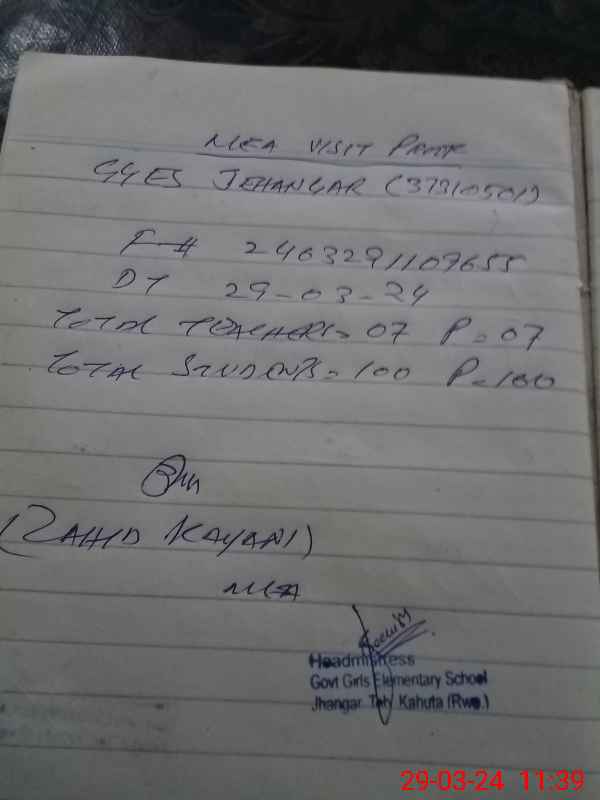 MEA VISIT PROOF
GGES JEHANGAR (37310501)
F-# 2463291109655
DT 29-03-24
TOTAL TEACHERS= 07 P=07
TOTAL STUDENTS= 100 P=100
(ZAHID KAYANI)
MEA
Headmistress
Govt Girls Elementary School
Jhangar Teh Kahuta (Rwp.)
29-03-24 11:39